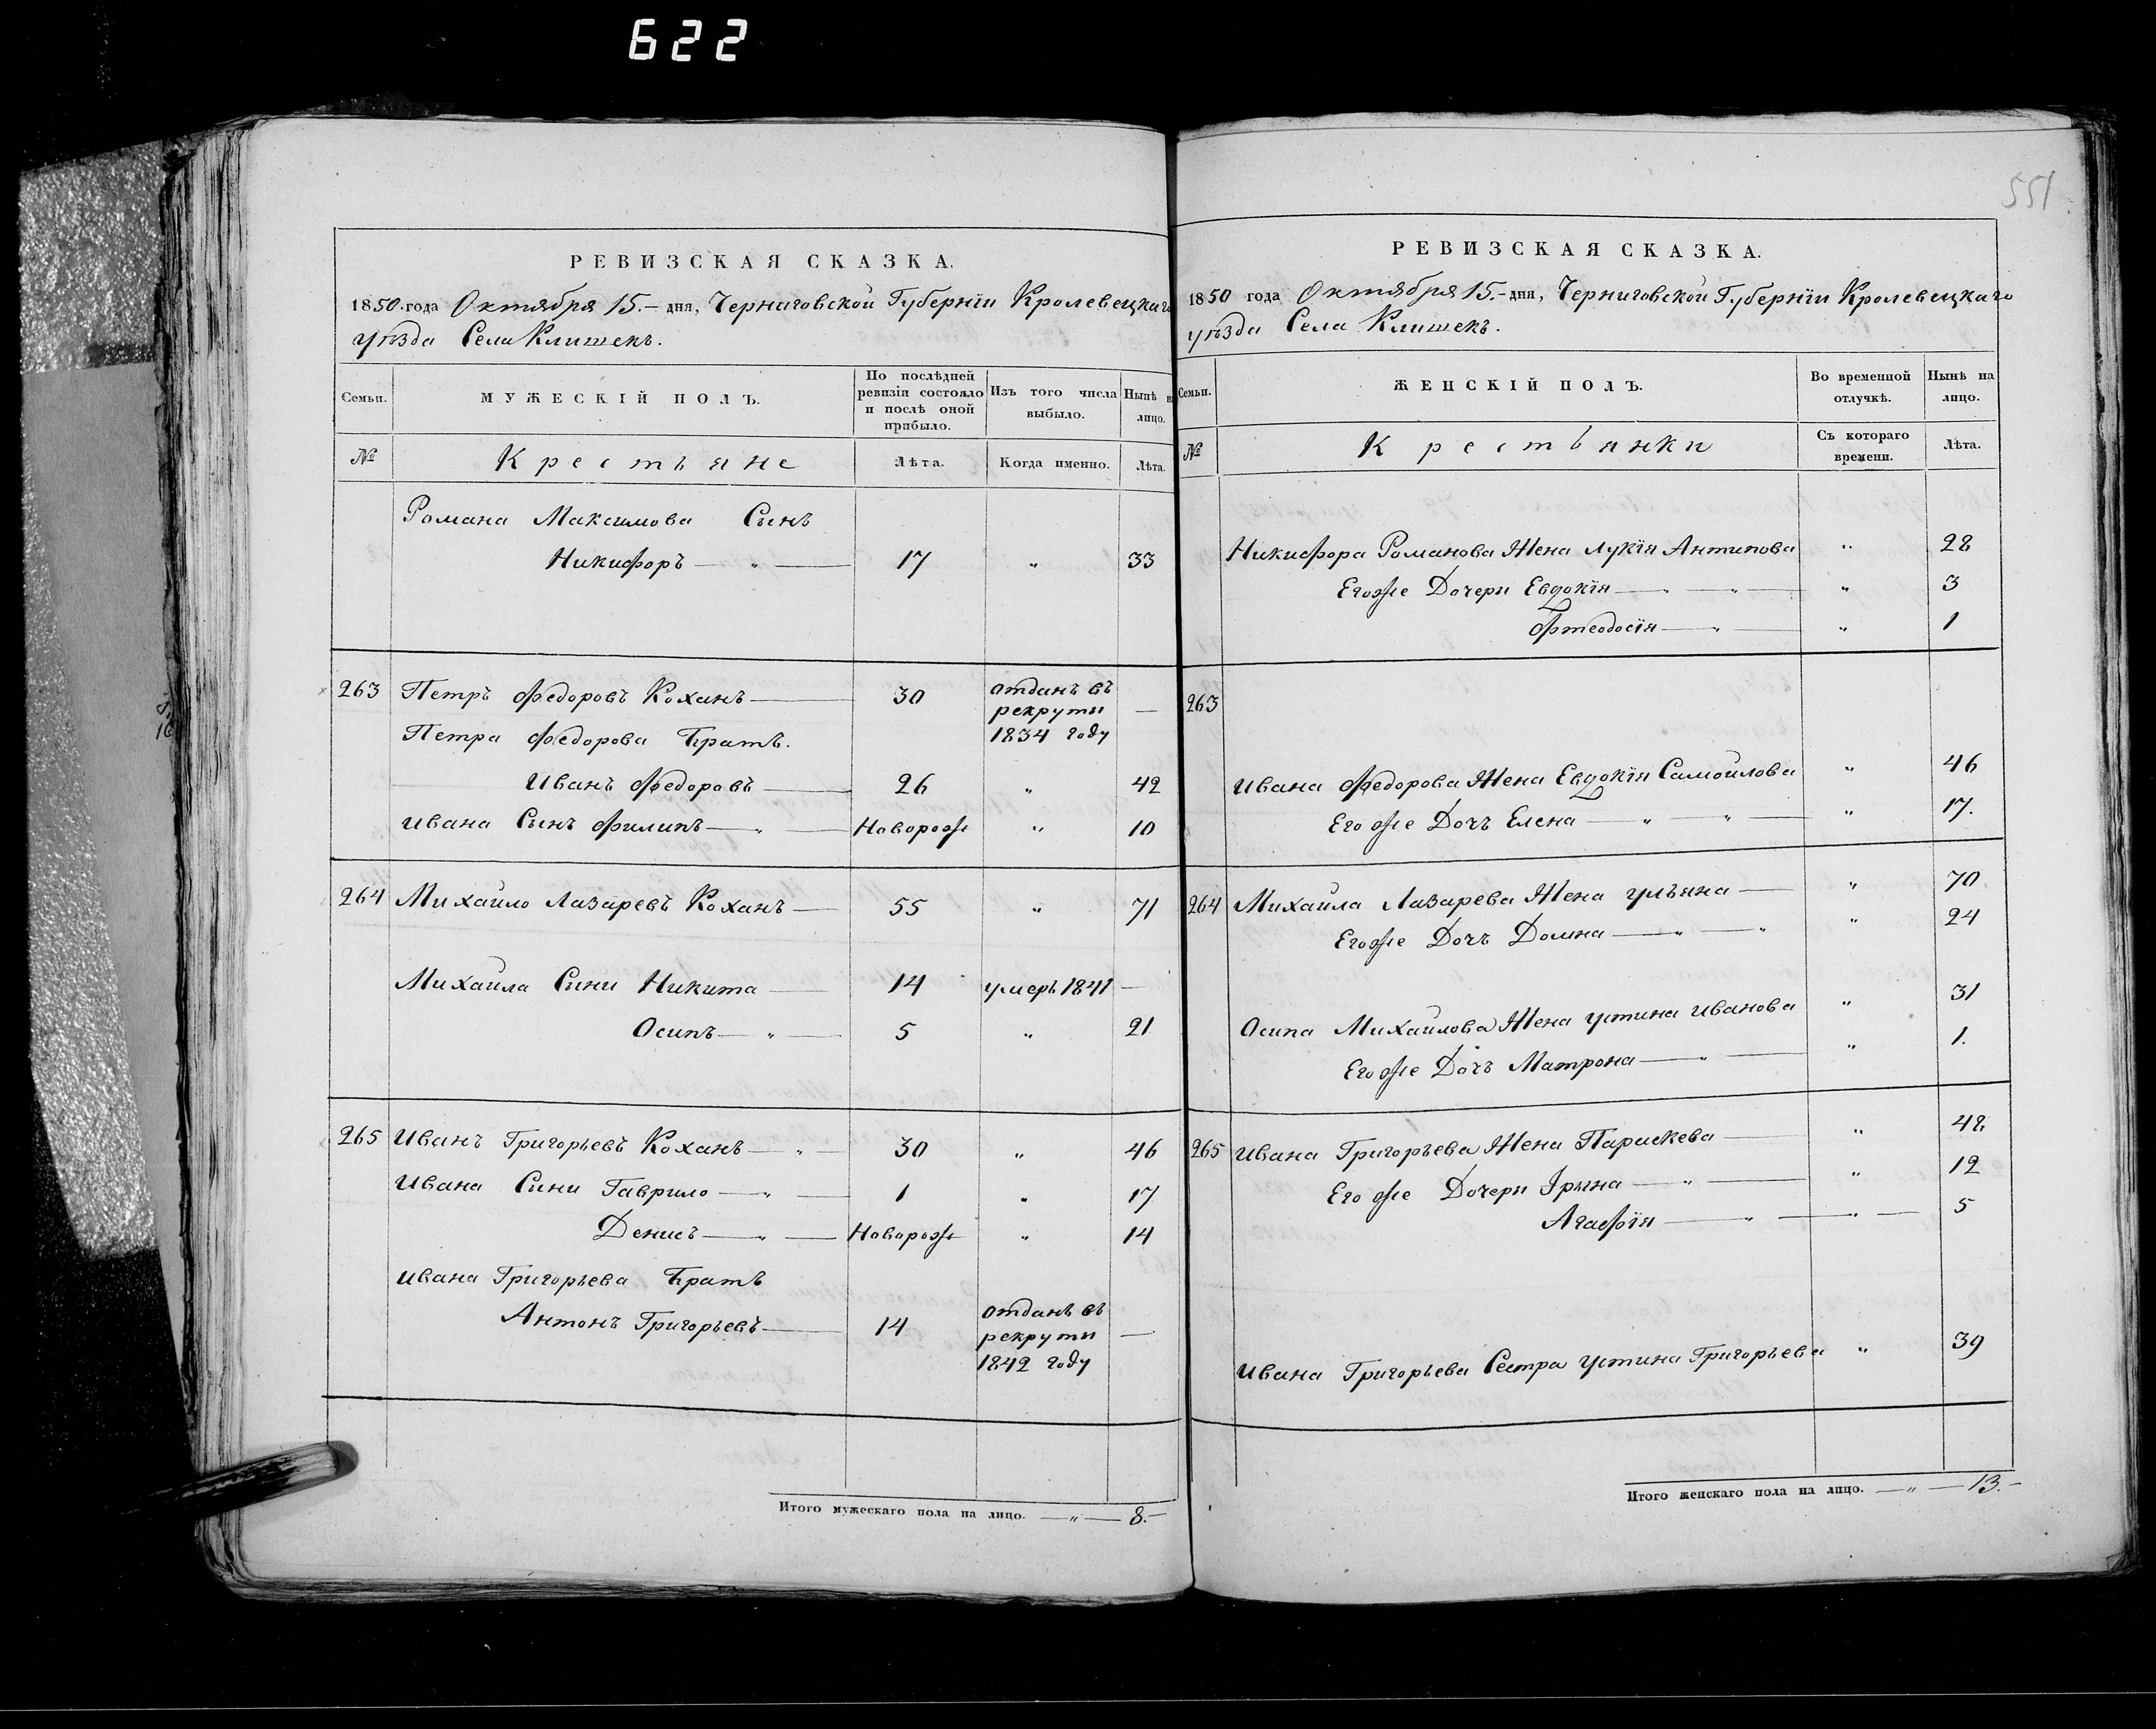 622
551
РЕВИЗСКАЯ СКАЗКА.
1850. года Октября 15.– дня, Черниговской Губерніи Кролевецкаго
уѣзда Села Клишекъ.
Семьи.
МУЖЕСКІЙ ПОЛЪ.
По послѣдней ревизіи состояло и послѣ оной прибыло.
Изъ того числа выбыло.
Нынѣ на лицо.
№
Крестьяне
Лѣта.
Когда именно.
Лѣта.
Романа Максимова Сынъ
Никифоръ — „ — 17 „ 33
263 Петръ Федоровъ Коханъ — 30 отданъ въ рекруты 1834 году —
Петра Федорова Братъ.
Иванъ Федоровъ — 26 „ 42
Ивана Сынъ Филипъ — „ — Новорож „ 10
264 Михайло Лазаревъ Коханъ — 55 „ 71
Михайла Сыни Никита — 14 умеръ 1841 —
Осипъ — „ — 5 „ 21
265 Иванъ Григорьевъ Коханъ — „ — 30 „ 46
Ивана Сыни Гаврило — „ — 1 „ 17
Денисъ — „ — Новорож „ 14
Ивана Григорьева Братъ
Антонъ Григорьевъ — 14 отданъ въ рекруты 1842 году —
Итого мужескаго пола на лицо. — „ — 8.–
РЕВИЗСКАЯ СКАЗКА.
1850 года Октября 15.– дня, Черниговской Губерніи Кролевецкаго
уѣзда Села Клишекъ.
Семьи.
ЖЕНСКІЙ ПОЛЪ.
Во временной отлучкѣ.
Нынѣ на лицо.
№
Крестьянки
Съ котораго времени.
Лѣта.
Никифора Романова Жена Лукія Антипова „ 28
Егоже Дочери Евдокія — „ — „ — „ 3
Фтеодосія — „ — „ 1
263
Ивана Федорова Жена Евдокія Самойлова „ 46
Его же Дочъ Елена — „ — „ — „ 17.
264 Михайла Лазарева Жена Ульяна — „ 70
Егоже Дочъ Домна — „ — „ „ 24
Осипа Михайлова Жена Устина Иванова „ 31
Его же Дочъ Матрона — „ — „ 1.
265 Ивана Григорьева Жена Параскева — „ 48
Его же Дочери Ірына — „ — „ 12
Агафія — „ — „ — 5
Ивана Григорьева Сестра Устина Григорьева „ 39
Итого женскаго пола на лицо. — „ — 13.–